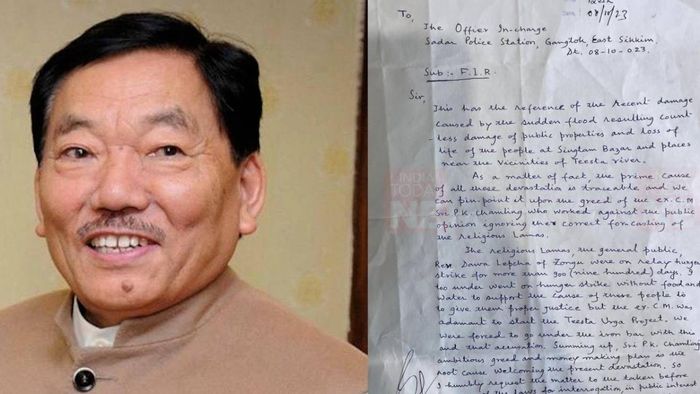 08/10/23
To,
The Officer In-charge
Sadar Police Station, Gangtok, East Sikkim
Dt. 08-10-023.
Sub :- F.I.R.
Sir,
This has the reference of the recent damage
caused by the sudden flood resulting count
-less damage of public properties and loss of
life of the people at Singtam Bazar and places
near the Vicinities of Teesta river.
As a matter of fact, the prime cause
of all these devastation is traceable and we
can pin-point it upon the greed of the ex. C.M
Sri P.K. Chamling who worked against the public
opinion ignoring the correct forcasting of
the religious Lamas.
The religious Lamas, the general public,
Rev. Dawa Lepcha of Zongu were on relay hunger
strike for more than 900 (nine hundred) days. I
too under went on hunger strike without food and
water to support the cause of these people to
to give them proper justice but the ex. C.M. was
adamant to start the Teesta Urga Project. We
were forced to go under the iron bar with this
and that accusation. Summing up, Sri P.K. Chamling
ambitious greed and money making plan is the
root cause welcoming the present devastation. So
I humbly request the matter to be taken before
the laws for interrogation in public interest
INDIA
TODAY
NE